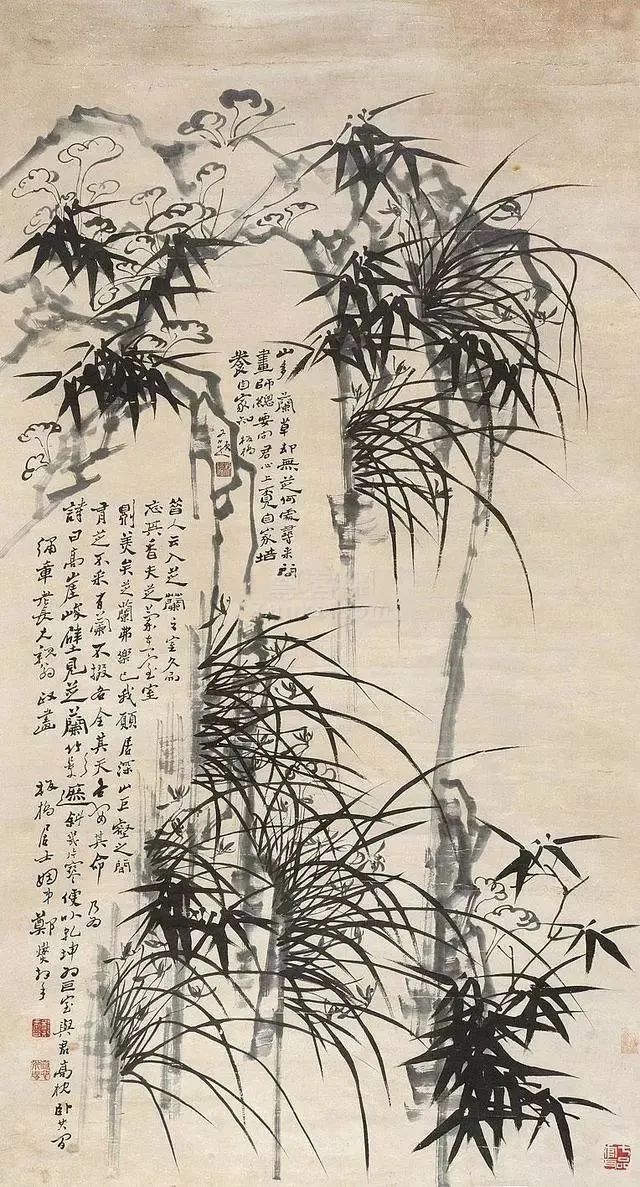 山多蘭草却無芝何處尋來問
畫師總要向君心上覓自家培
養自家知 板橋
又題
昔人云入芝蘭之室久而
忘其香夫芝蘭在室室
則美矣芝蘭弗樂也我願居深山巨壑之間
有芝不采有蘭不掇各全其天各安其命 乃為
詩曰高崖峻壁見芝蘭竹影遮斜幾片寒便以乾坤為巨室與君高枕卧其間
老長兄親翁政 板橋居士姻弟鄭燮拜手